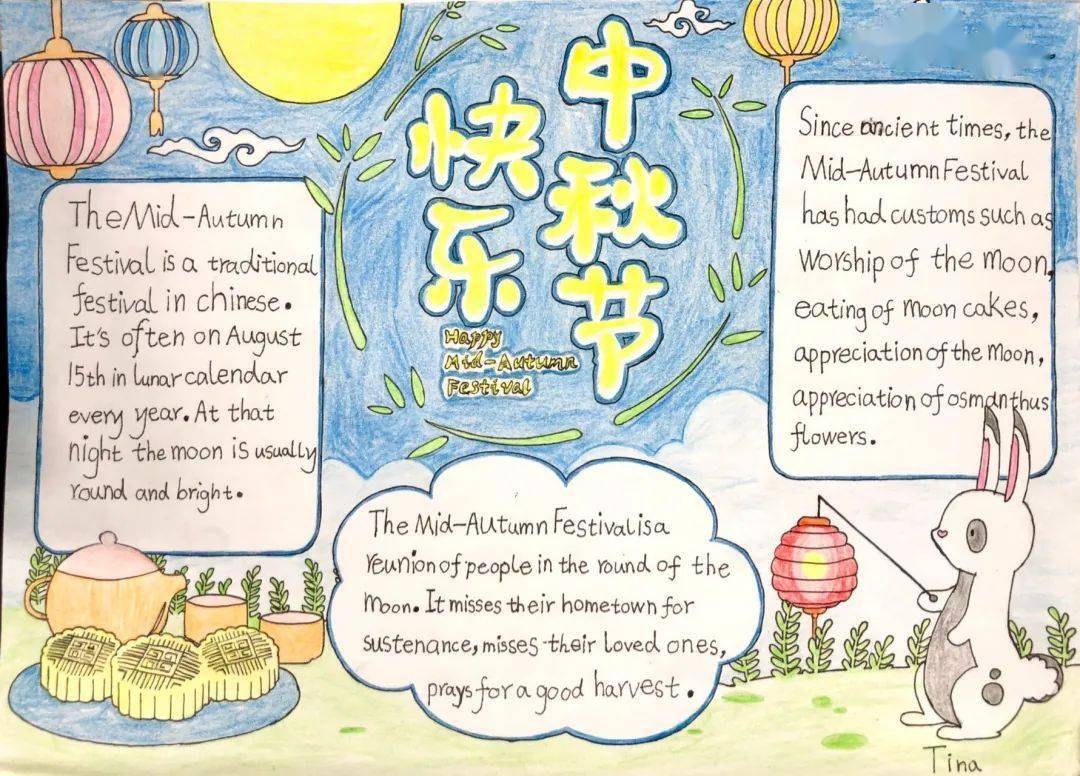 中秋节
快乐
Happy
Mid-Autumn
Festival
The Mid-Autumn
Festival is a traditional
festival in chinese.
It's often on August
15th in lunar calendar
every year. At that
night the moon is usually
round and bright.
Since ancient times, the
Mid-Autumn Festival
has had customs such as
worship of the moon,
eating of moon cakes,
appreciation of the moon,
appreciation of osmanthus
flowers.
The Mid-Autumn Festival is a
reunion of people in the round of the
moon. It misses their hometown for
sustenance, misses their loved ones,
prays for a good harvest.
Tina